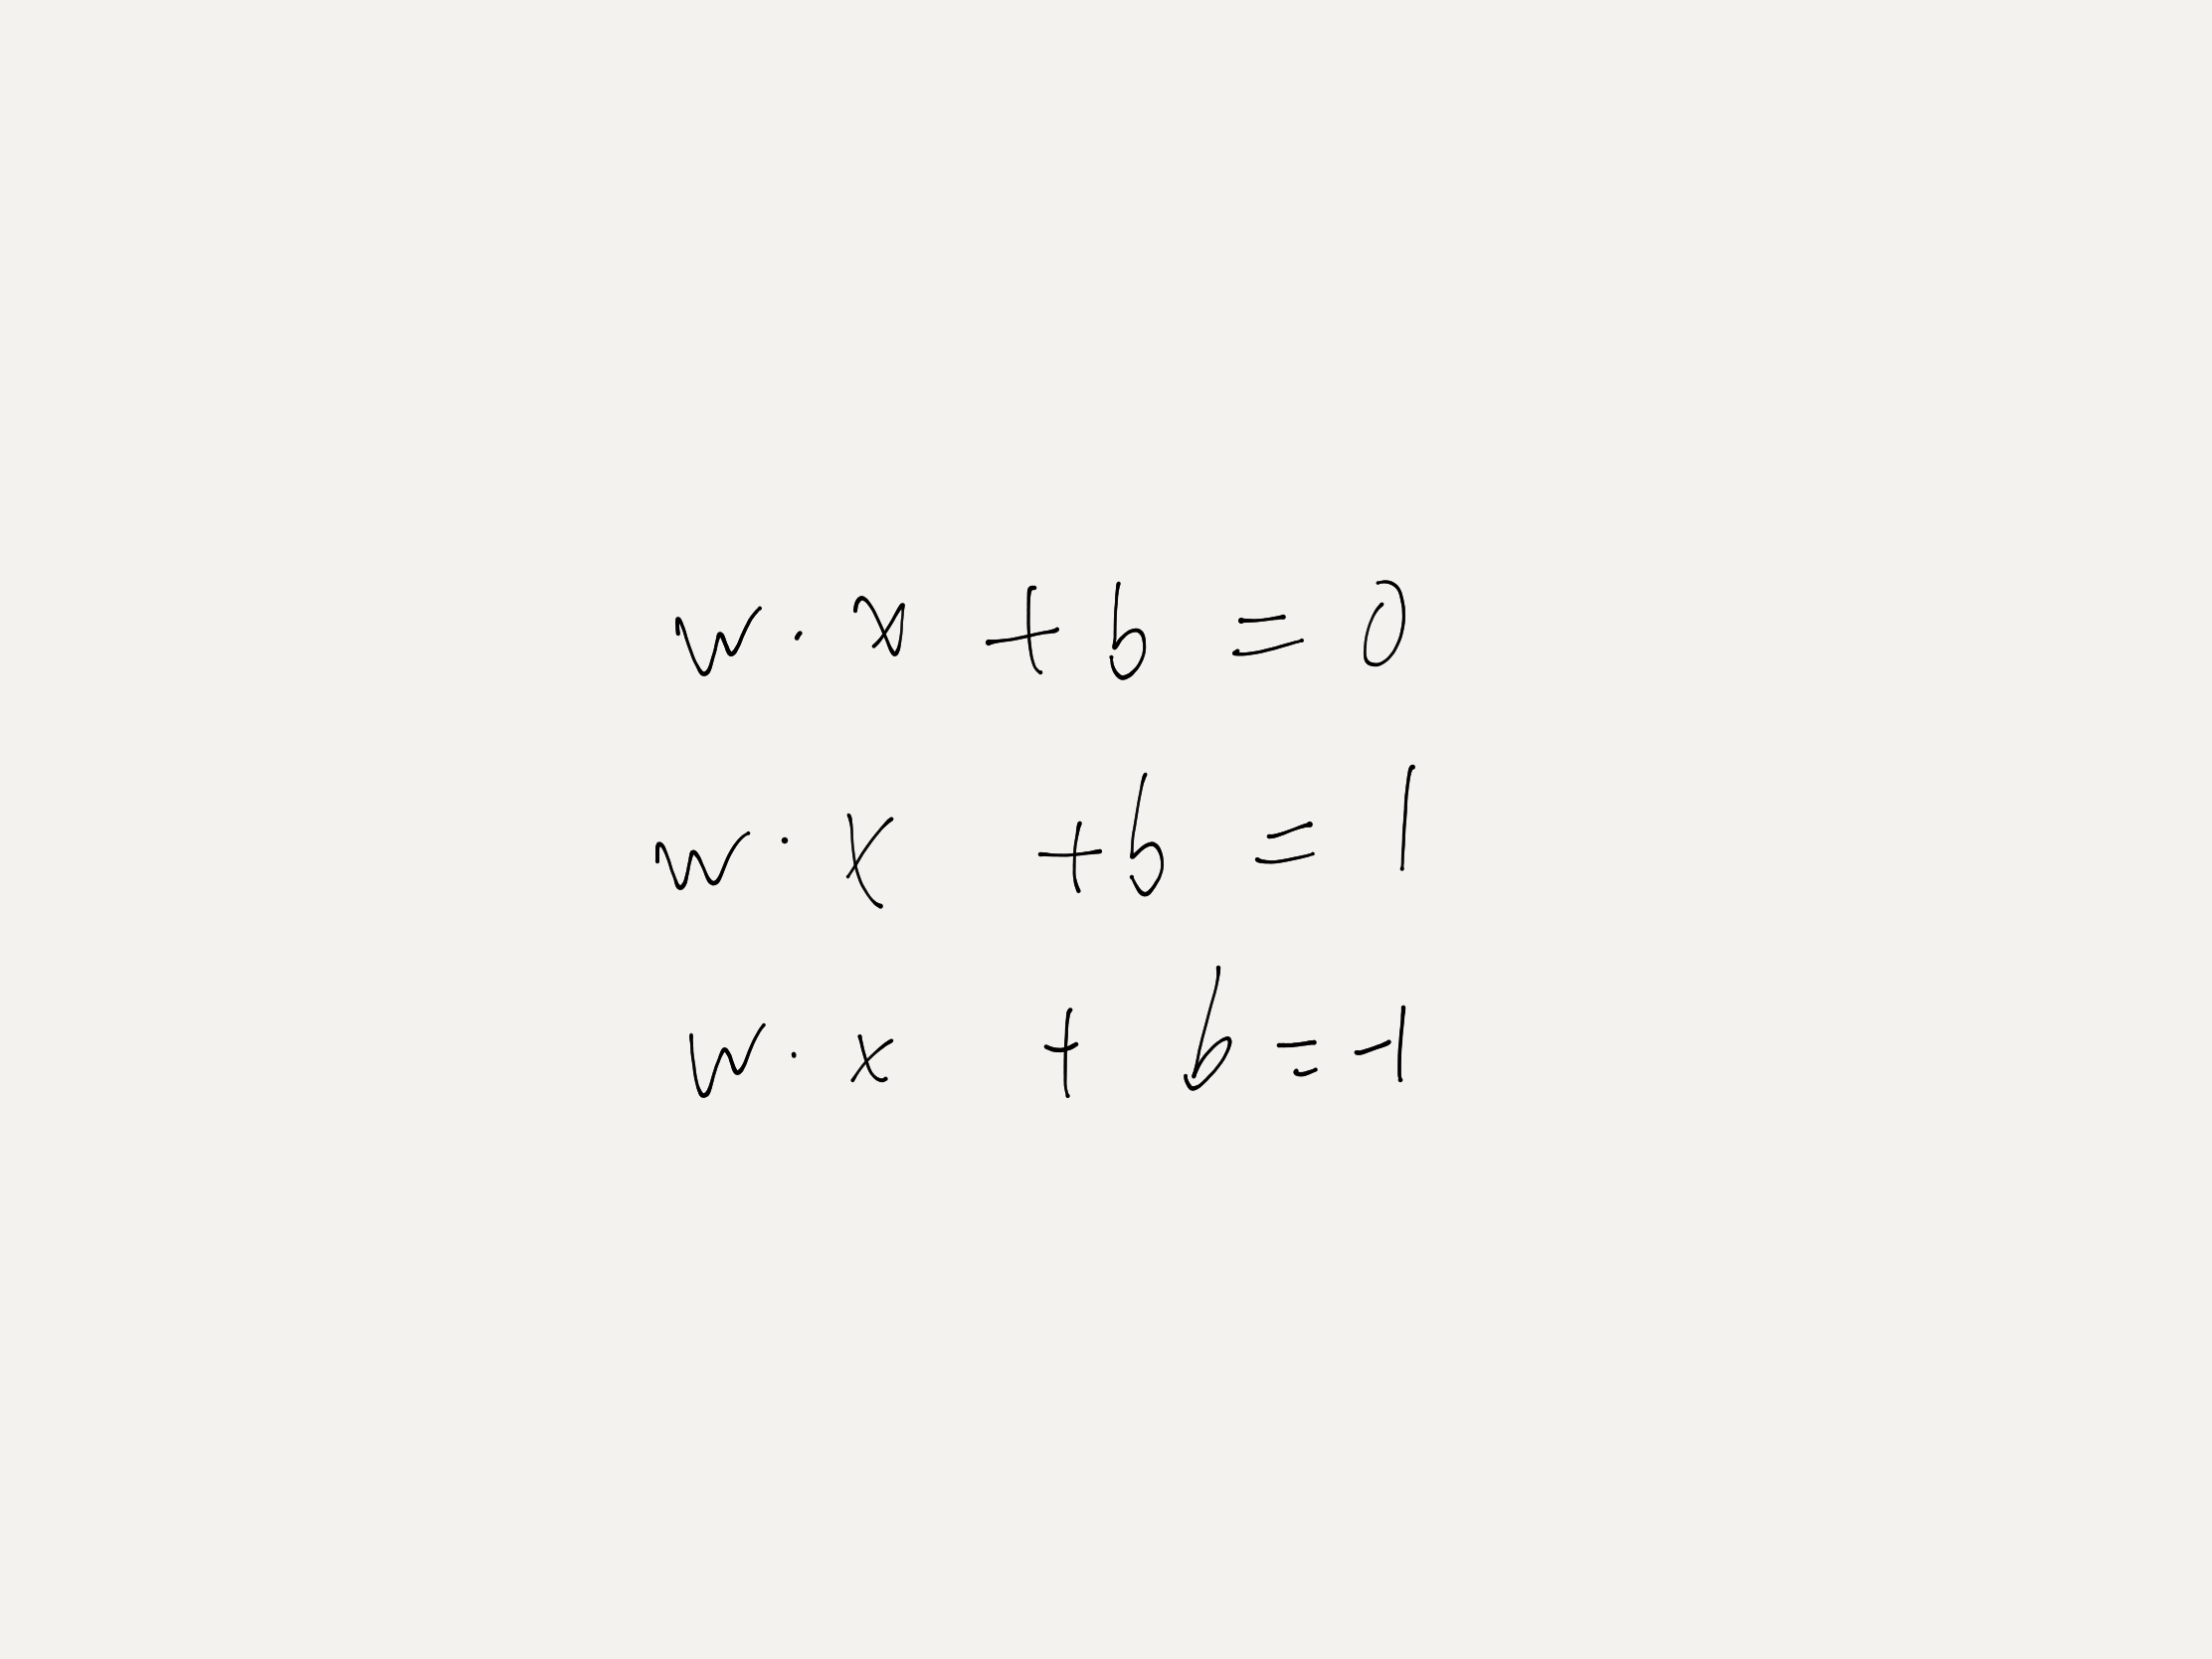 w · x + b = 0
w · x + b = 1
w · x + b = -1